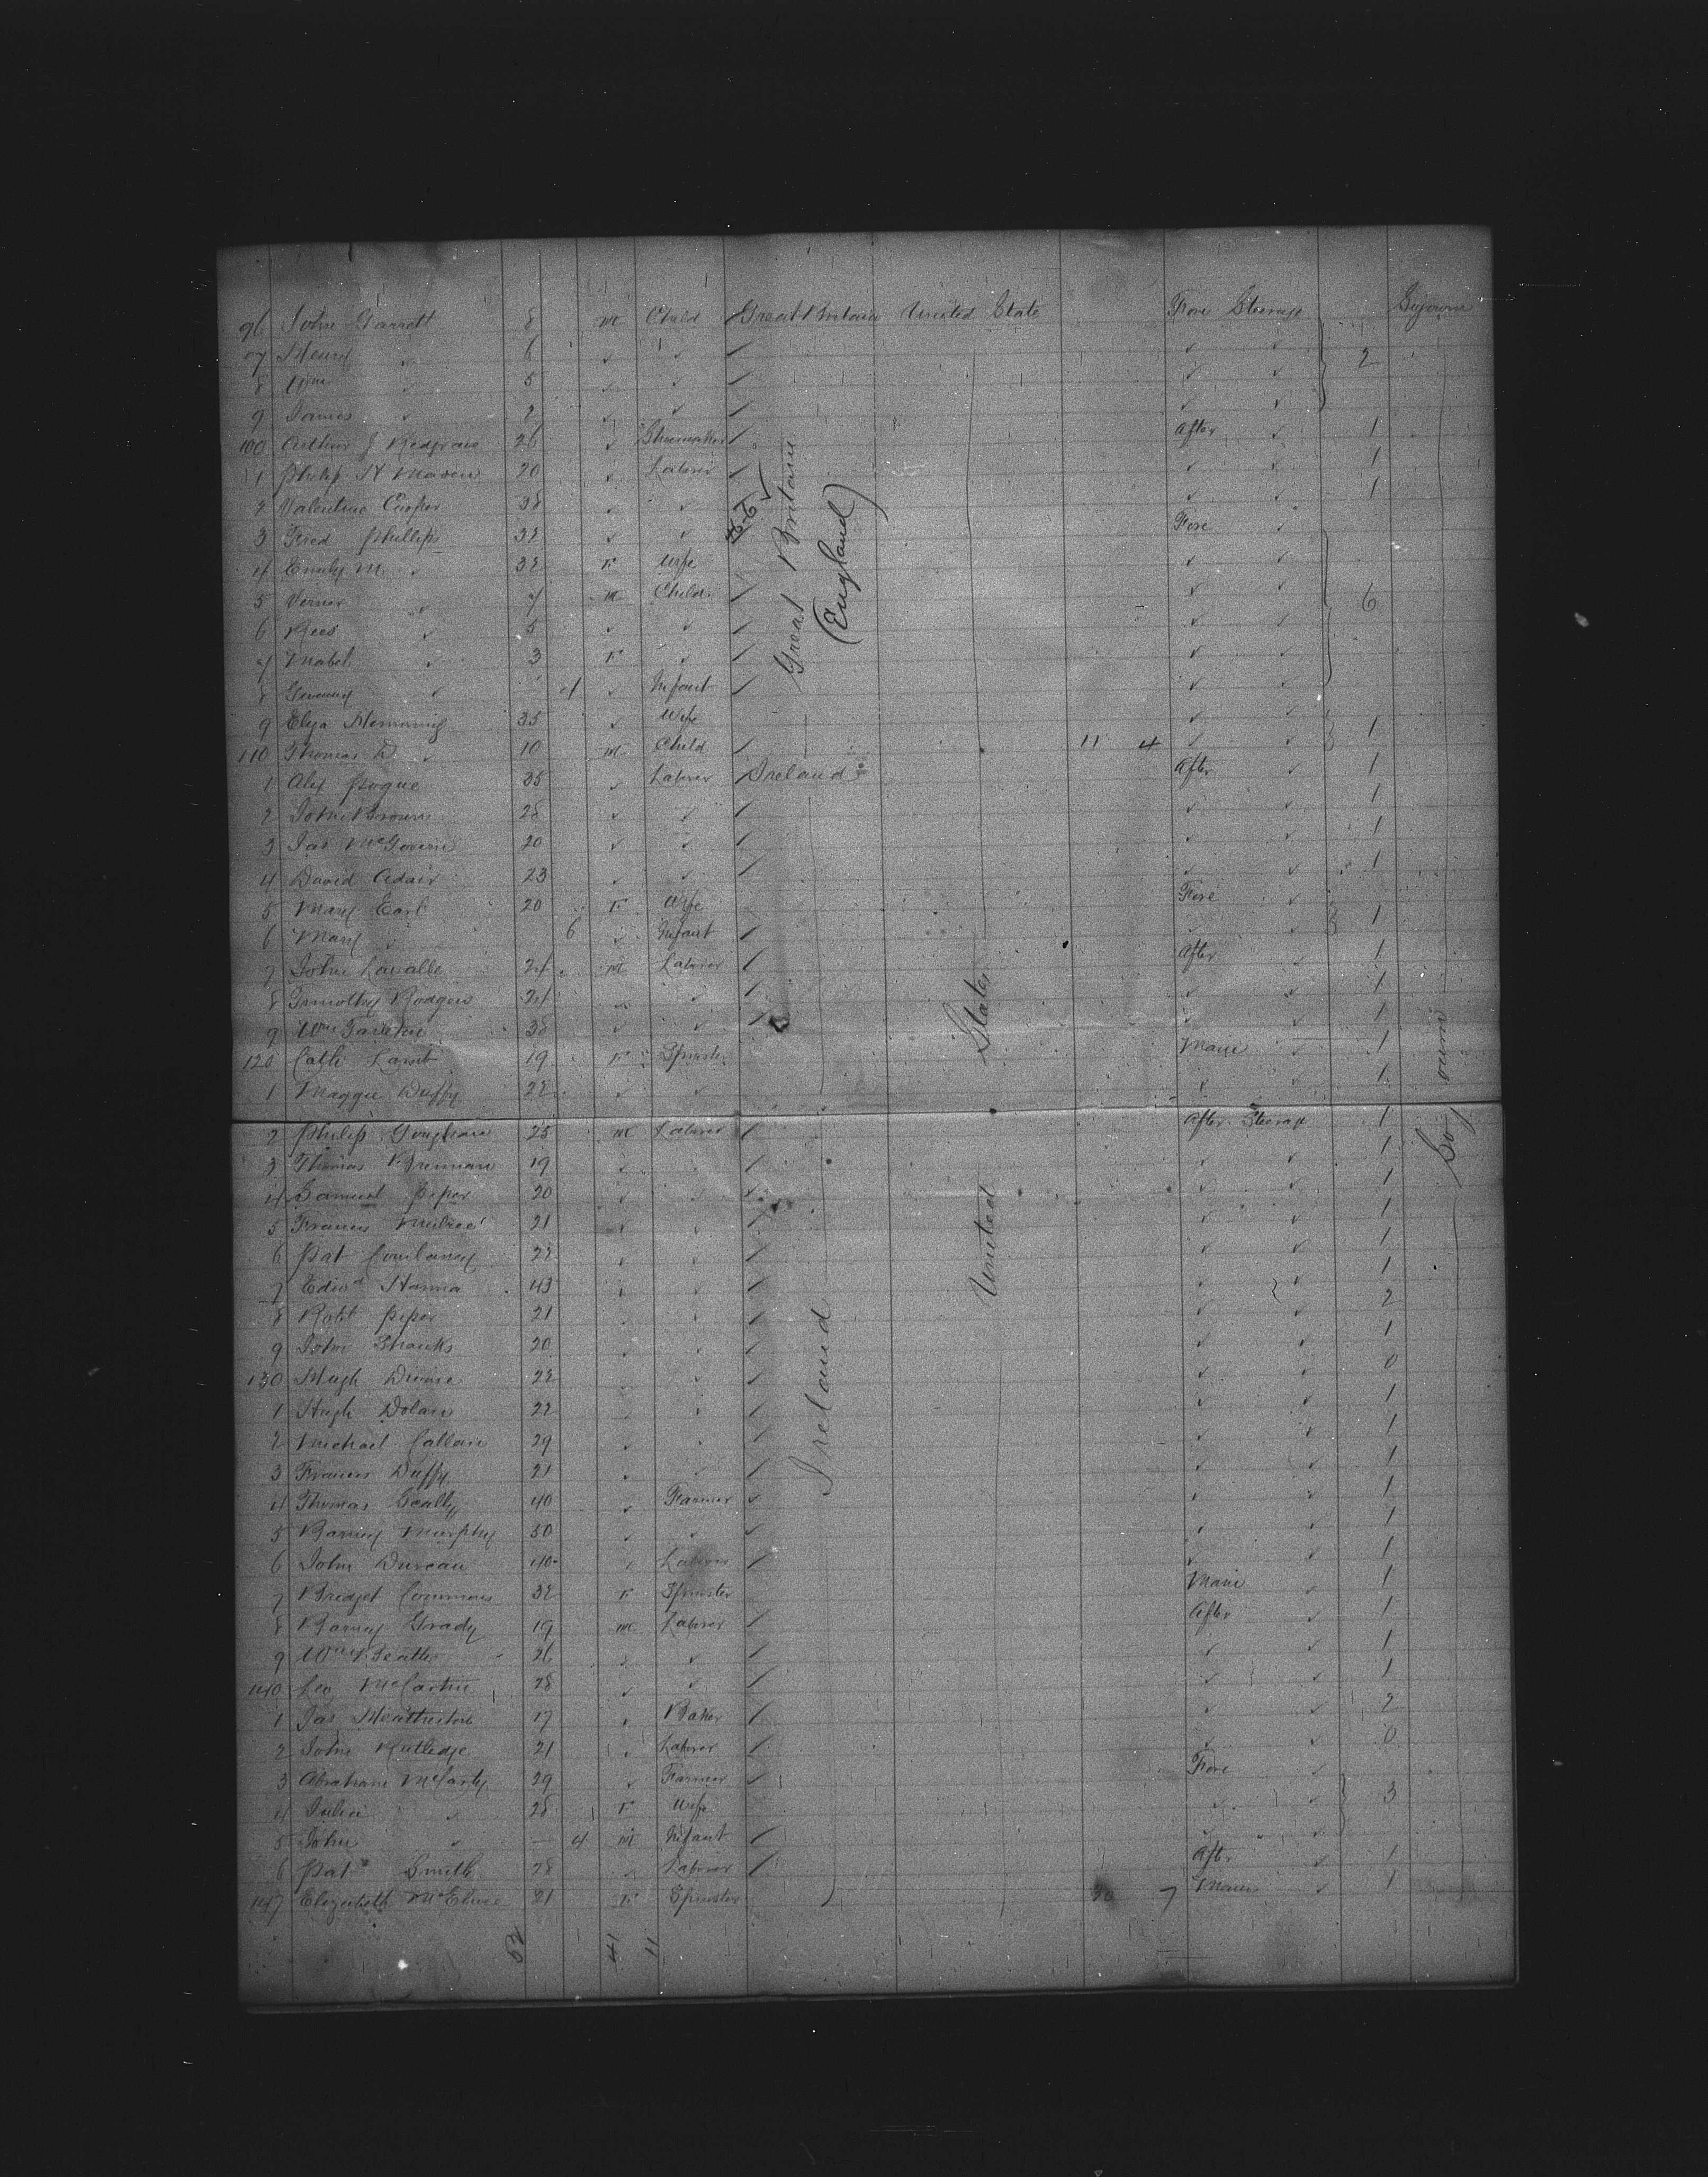 96 John Garrott 8 m Child Great Britain United State Fore Steerage Sojourn
97 Henry ✓ 6 ✓ ✓ ✓ ✓ 2
8 Wm ✓ 5 ✓ ✓ ✓ ✓
9 James ✓ 2 ✓ ✓ ✓ ✓
100 Arthur J Redgrave 26 ✓ Shoemaker After ✓ 1
1 Philip H 20 ✓ Laborer ✓ ✓ 1
2 Valentine Cooper 38 ✓ ✓ ✓ ✓ 1
3 Fred Phillips 32 ✓ ✓ Fore ✓
4 Emily M. ✓ 32 F Wife ✓ ✓
5 Verner ✓ 7 m Child ✓ ✓ 6
6 Rees ✓ 5 ✓ ✓ ✓ ✓
7 Mabel ✓ 3 F ✓ ✓ ✓
8 ✓ 4 ✓ Infant ✓ ✓
Great Britain
(England)
9 Eliza Hemming 35 ✓ Wife ✓ ✓
110 Thomas D. ✓ 10 m Child 11 4 ✓ ✓ 1
1 Alex Pogue 35 ✓ Laborer Ireland After ✓ 1
2 John Brown 28 ✓ ✓ ✓ ✓ 1
3 Jas McGovern 20 ✓ ✓ ✓ ✓ 1
4 David Adair 23 ✓ ✓ ✓ ✓ 1
5 Mary Earl 20 F Wife Fore ✓
6 Mary ✓ 6 ✓ Infant ✓ ✓ 1
7 John Lavalle 24 m Laborer After ✓ 1
8 Timothy Rodgers 24 ✓ ✓ ✓ ✓ 1
9 Wm 38 ✓ ✓ ✓ ✓ 1
120 Cath Lamb 19 F Spinster Main ✓ 1
1 Maggie Duffy 22 ✓ ✓ ✓ ✓ 1
2 Philip 25 m Laborer After Steerage 1
3 Thomas Brennan 19 ✓ ✓ ✓ ✓ 1
4 Samuel Piper 20 ✓ ✓ ✓ ✓ 1
5 Francis 21 ✓ ✓ ✓ ✓ 1
6 Pat 22 ✓ ✓ ✓ ✓ 1
7 Edwd Hanna 43 ✓ ✓ ✓ ✓ 1
8 Robt Piper 21 ✓ ✓ ✓ ✓ 2
9 John Shanks 20 ✓ ✓ ✓ ✓ 1
130 Hugh Devine 22 ✓ ✓ 0
1 Hugh Dolan 22 ✓ ✓ 1
2 Michael Callan 29 ✓ ✓ 1
3 Francis Duffy 21 ✓ ✓ ✓ ✓ 1
Ireland
United States
Sojourn
4 Thomas Scally 40 ✓ Farmer ✓ ✓ 1
5 Barney Murphy 50 ✓ ✓ ✓ ✓ 1
6 John Duncan 40 ✓ Laborer ✓ ✓ 1
7 Bridget Commons 32 F Spinster Main ✓ 1
8 Barney Grady 19 m Laborer After ✓ 1
9 Wm Beattie 26 ✓ ✓ ✓ ✓ 1
140 Leo McCartin 28 ✓ ✓ ✓ ✓ 1
1 Jas 17 ✓ Baker ✓ ✓ 2
2 John Rutledge 21 ✓ Laborer ✓ ✓ 0
3 Abraham McCarty 29 ✓ Farmer Fore ✓
4 Julia ✓ 28 F Wife ✓ ✓ 3
5 John ✓ — 4 m Infant ✓ ✓
6 Pat Smith 28 ✓ Laborer After ✓ 1
147 Elizabeth 21 F Spinster 30 7 Main ✓ 1
52 41 11